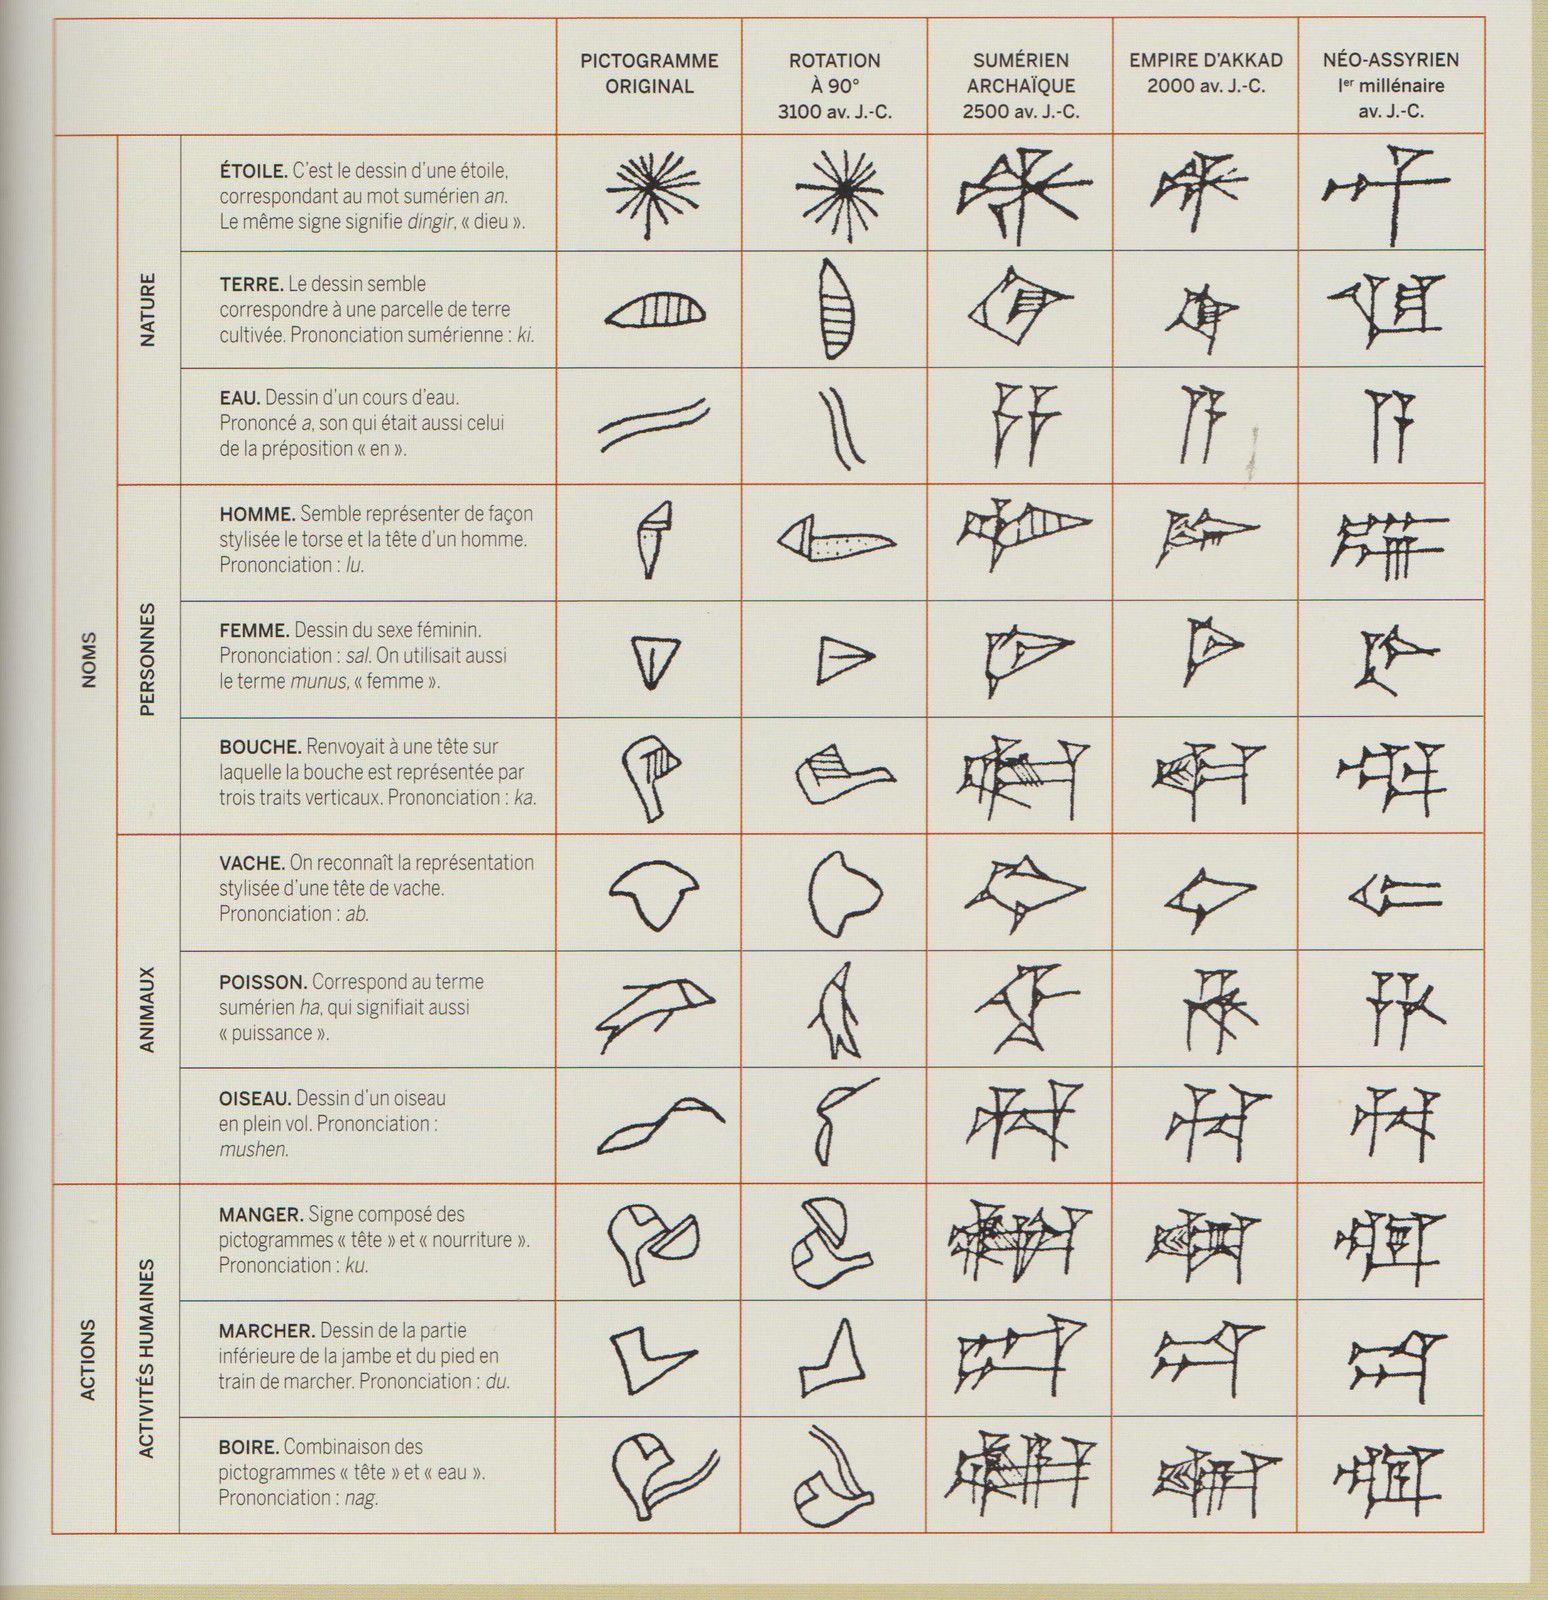 PICTOGRAMME
ORIGINAL
ROTATION
À 90°
3100 av. J.-C.
SUMÉRIEN
ARCHAÏQUE
2500 av. J.-C.
EMPIRE D'AKKAD
2000 av. J.-C.
NÉO-ASSYRIEN
Ier millénaire
av. J.-C.
NOMS
NATURE
ÉTOILE. C'est le dessin d'une étoile,
correspondant au mot sumérien an.
Le même signe signifie dingir, « dieu ».
TERRE. Le dessin semble
correspondre à une parcelle de terre
cultivée. Prononciation sumérienne : ki.
EAU. Dessin d'un cours d'eau.
Prononcé a, son qui était aussi celui
de la préposition « en ».
PERSONNES
HOMME. Semble représenter de façon
stylisée le torse et la tête d'un homme.
Prononciation : lu.
FEMME. Dessin du sexe féminin.
Prononciation : sal. On utilisait aussi
le terme munus, « femme ».
BOUCHE. Renvoyait à une tête sur
laquelle la bouche est représentée par
trois traits verticaux. Prononciation : ka.
ANIMAUX
VACHE. On reconnaît la représentation
stylisée d'une tête de vache.
Prononciation : ab.
POISSON. Correspond au terme
sumérien ha, qui signifiait aussi
« puissance ».
OISEAU. Dessin d'un oiseau
en plein vol. Prononciation :
mushen.
ACTIONS
ACTIVITÉS HUMAINES
MANGER. Signe composé des
pictogrammes « tête » et « nourriture ».
Prononciation : ku.
MARCHER. Dessin de la partie
inférieure de la jambe et du pied en
train de marcher. Prononciation : du.
BOIRE. Combinaison des
pictogrammes « tête » et « eau ».
Prononciation : nag.